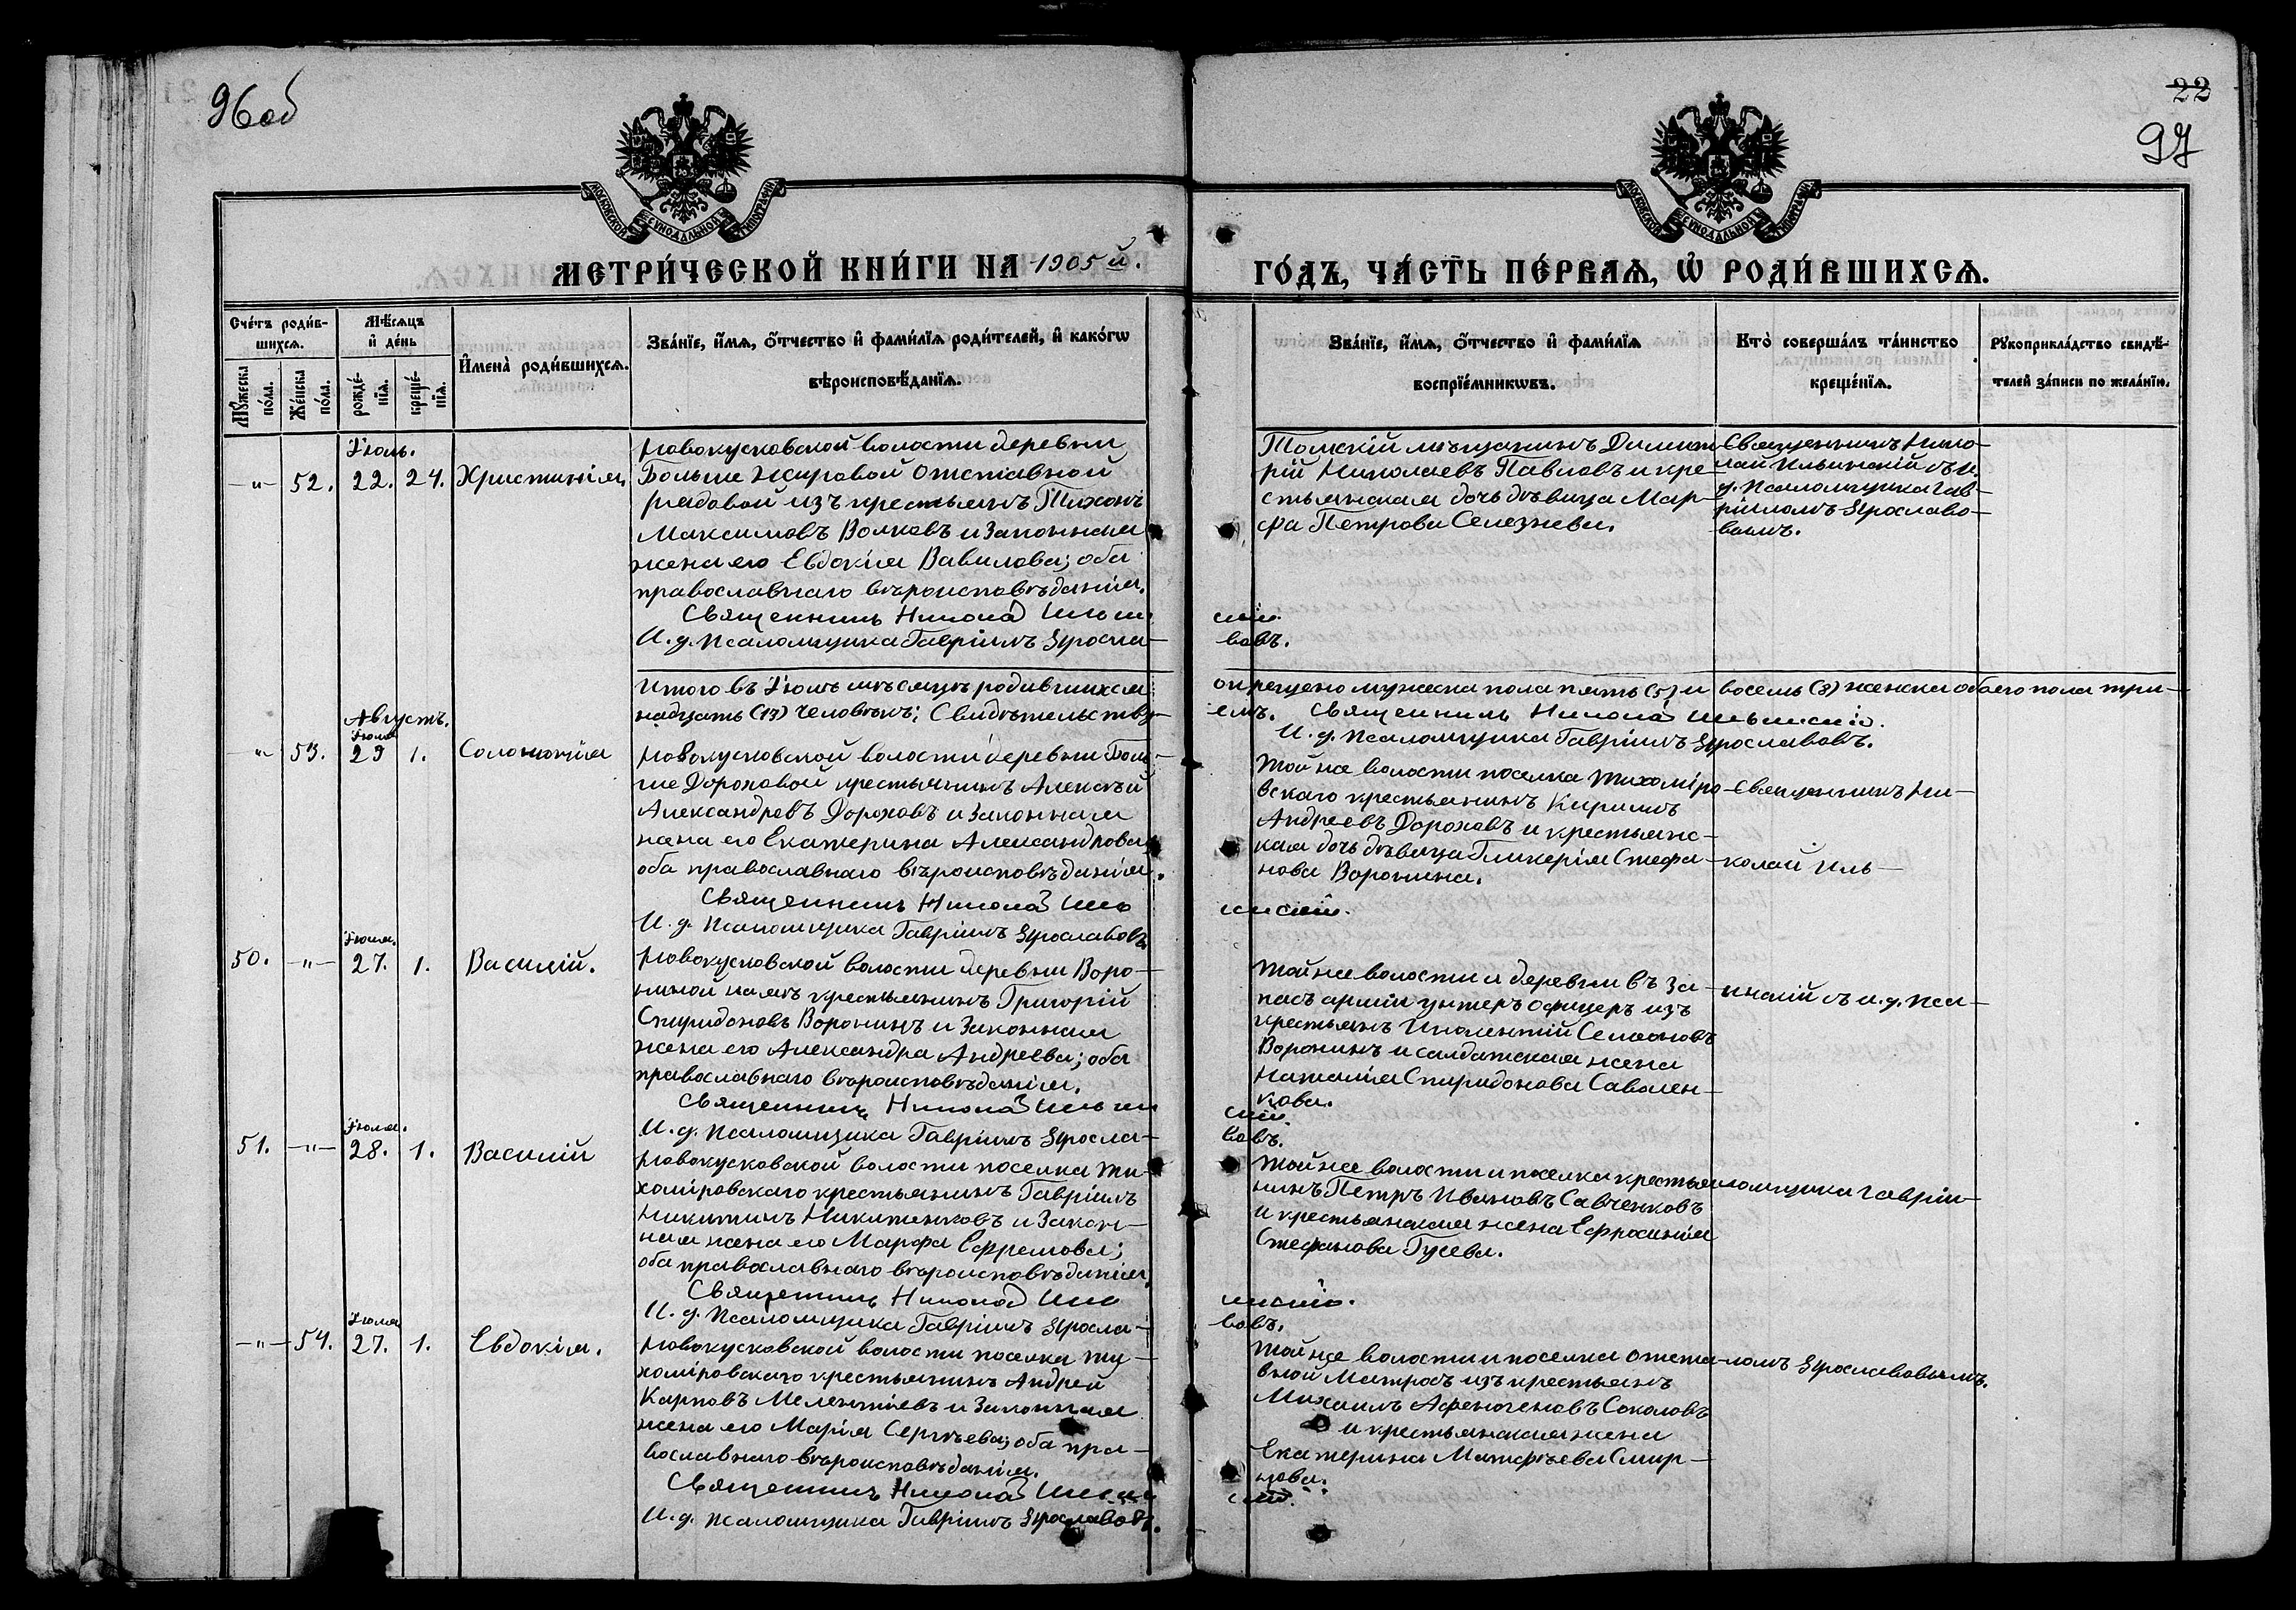 96 об
22
97
МОСКОВСКОЙ СѴНОДАЛЬНОЙ ТИПОГРАФІИ
МОСКОВСКОЙ СѴНОДАЛЬНОЙ ТИПОГРАФІИ
МЕТРИ́ЧЕСКОЙ КНИ́ГИ НА 1905 й.
ГО́ДЪ, ЧА́СТЬ ПЕ́РВАѦ, Ѿ РОДИ́ВШИХСѦ.
Сче́тъ роди́в-
шихсѧ.
Мѣ́сѧцъ
и҆ де́нь
Мꙋ́жеска
по́ла.
Же́нска
по́ла.
рожде́-
нїѧ.
креще́-
нїѧ.
И҆мена̀ роди́вшихсѧ.
Зва́нїе, и҆́мѧ, ѻ҆́тчество и҆ фами́лїѧ роди́телей, и҆ како́гѡ
вѣроисповѣ́данїѧ.
Зва́нїе, и҆́мѧ, ѻ҆́тчество и҆ фами́лїѧ
воспрїе́мникѡвъ.
Кто̀ соверша́лъ та́инство
креще́нїѧ.
Рꙋкоприкла́дство свидѣ́-
телей за́писи по жела́нїю.
Іюль.
-„- 52. 22. 24. Христинія.
Новокусковской волости деревни
Больше Жировой отставной
рядовой изъ крестьянъ Тихонъ
Максимовъ Волковъ и законная
жена его Евдокія Вавилова; оба
православнаго вѣроисповѣданія.
Священникъ Николай Ильин
И. д. псаломщика Гавріилъ Яросла-
Томскій мѣщанинъ Димит-
рій Николаевъ Павловъ и кре-
стьянская дочь дѣвица Мар-
ѳа Петрова Селезнева.
Священникъ Нико-
лай Ильинскій съ и.
д. псаломщика Гав-
ріиломъ Ярославо-
вымъ.
скій.
вовъ.
Итого въ Іюлѣ мѣсяцѣ родившихся
надцать (13) человѣкъ; Свидѣтельству-
окрещено мужеска пола пять (5) и восемь (8) женска обоего пола три-
емъ. Священникъ Николай Ильинскій.
И. д. псаломщика Гавріилъ Ярославовъ.
Августъ.
Іюля
-„- 53. 29 1. Соломонія
Новокусковской волости деревни Боль-
ше Дороховой крестьянинъ Алексѣй
Александровъ Дороховъ и законная
жена его Екатерина Александрова;
оба православнаго вѣроисповѣданія.
Священникъ Николай Иль
И. д. псаломщика Гавріилъ Ярославовъ.
Той же волости поселка Тихоміро-
вскаго крестьянинъ Кирилъ
Андреевъ Дороховъ и крестьянс-
кая дочь дѣвица Гликерія Стефа-
нова Воронина.
Священникъ Ни-
колай Иль-
инскій.
Іюля.
50. -„- 27. 1. Василій.
Новокусковской волости деревни Воро-
ниной пашни крестьянинъ Григорій
Спиридоновъ Воронинъ и законная
жена его Александра Андреева; оба
православнаго вѣроисповѣданія.
Священникъ Николай Ильин
И. д. псаломщика Гавріилъ Яросла-
Той же волости и деревни въ за-
пасѣ арміи унтеръ офицеръ изъ
крестьянъ Инокентій Семеоновъ
Воронинъ и солдатская жена
Наталія Спиридонова Савален-
кова.
инскій съ и. д. пса-
скій
вовъ.
Іюля.
51. -„- 28. 1. Василій
Новокусковской волости поселка Ти-
хоміровскаго крестьянинъ Гавріилъ
Никитинъ Никитенковъ и закон-
ная жена его Марѳа Ефремова;
оба православнаго вѣроисповѣданія.
Священникъ Николай Иль
И. д. псаломщика Гавріилъ Яросла-
Той же волости и поселка крестья-
нинъ Петръ Ивановъ Савченковъ
и крестьянская жена Ефросинія
Стефанова Гусева.
ломщика Гавріи-
инскій.
вовъ.
Іюля
-„- 54. 27. 1. Евдокія.
Новокусковской волости поселка Ти-
хоміровскаго крестьянинъ Андрей
Карповъ Мелентіевъ и законная
жена его Марія Сергѣева; оба пра-
вославнаго вѣроисповѣданія.
Священникъ Николай Ильин
И. д. псаломщика Гавріилъ Ярославовъ.
Той же волости и поселка отста-
вной матросъ изъ крестьянъ
Михаилъ Афеногеновъ Соколовъ
и крестьянская жена
Екатерина Матфѣева Смир-
нова.
ломъ Ярославовымъ.
скій.